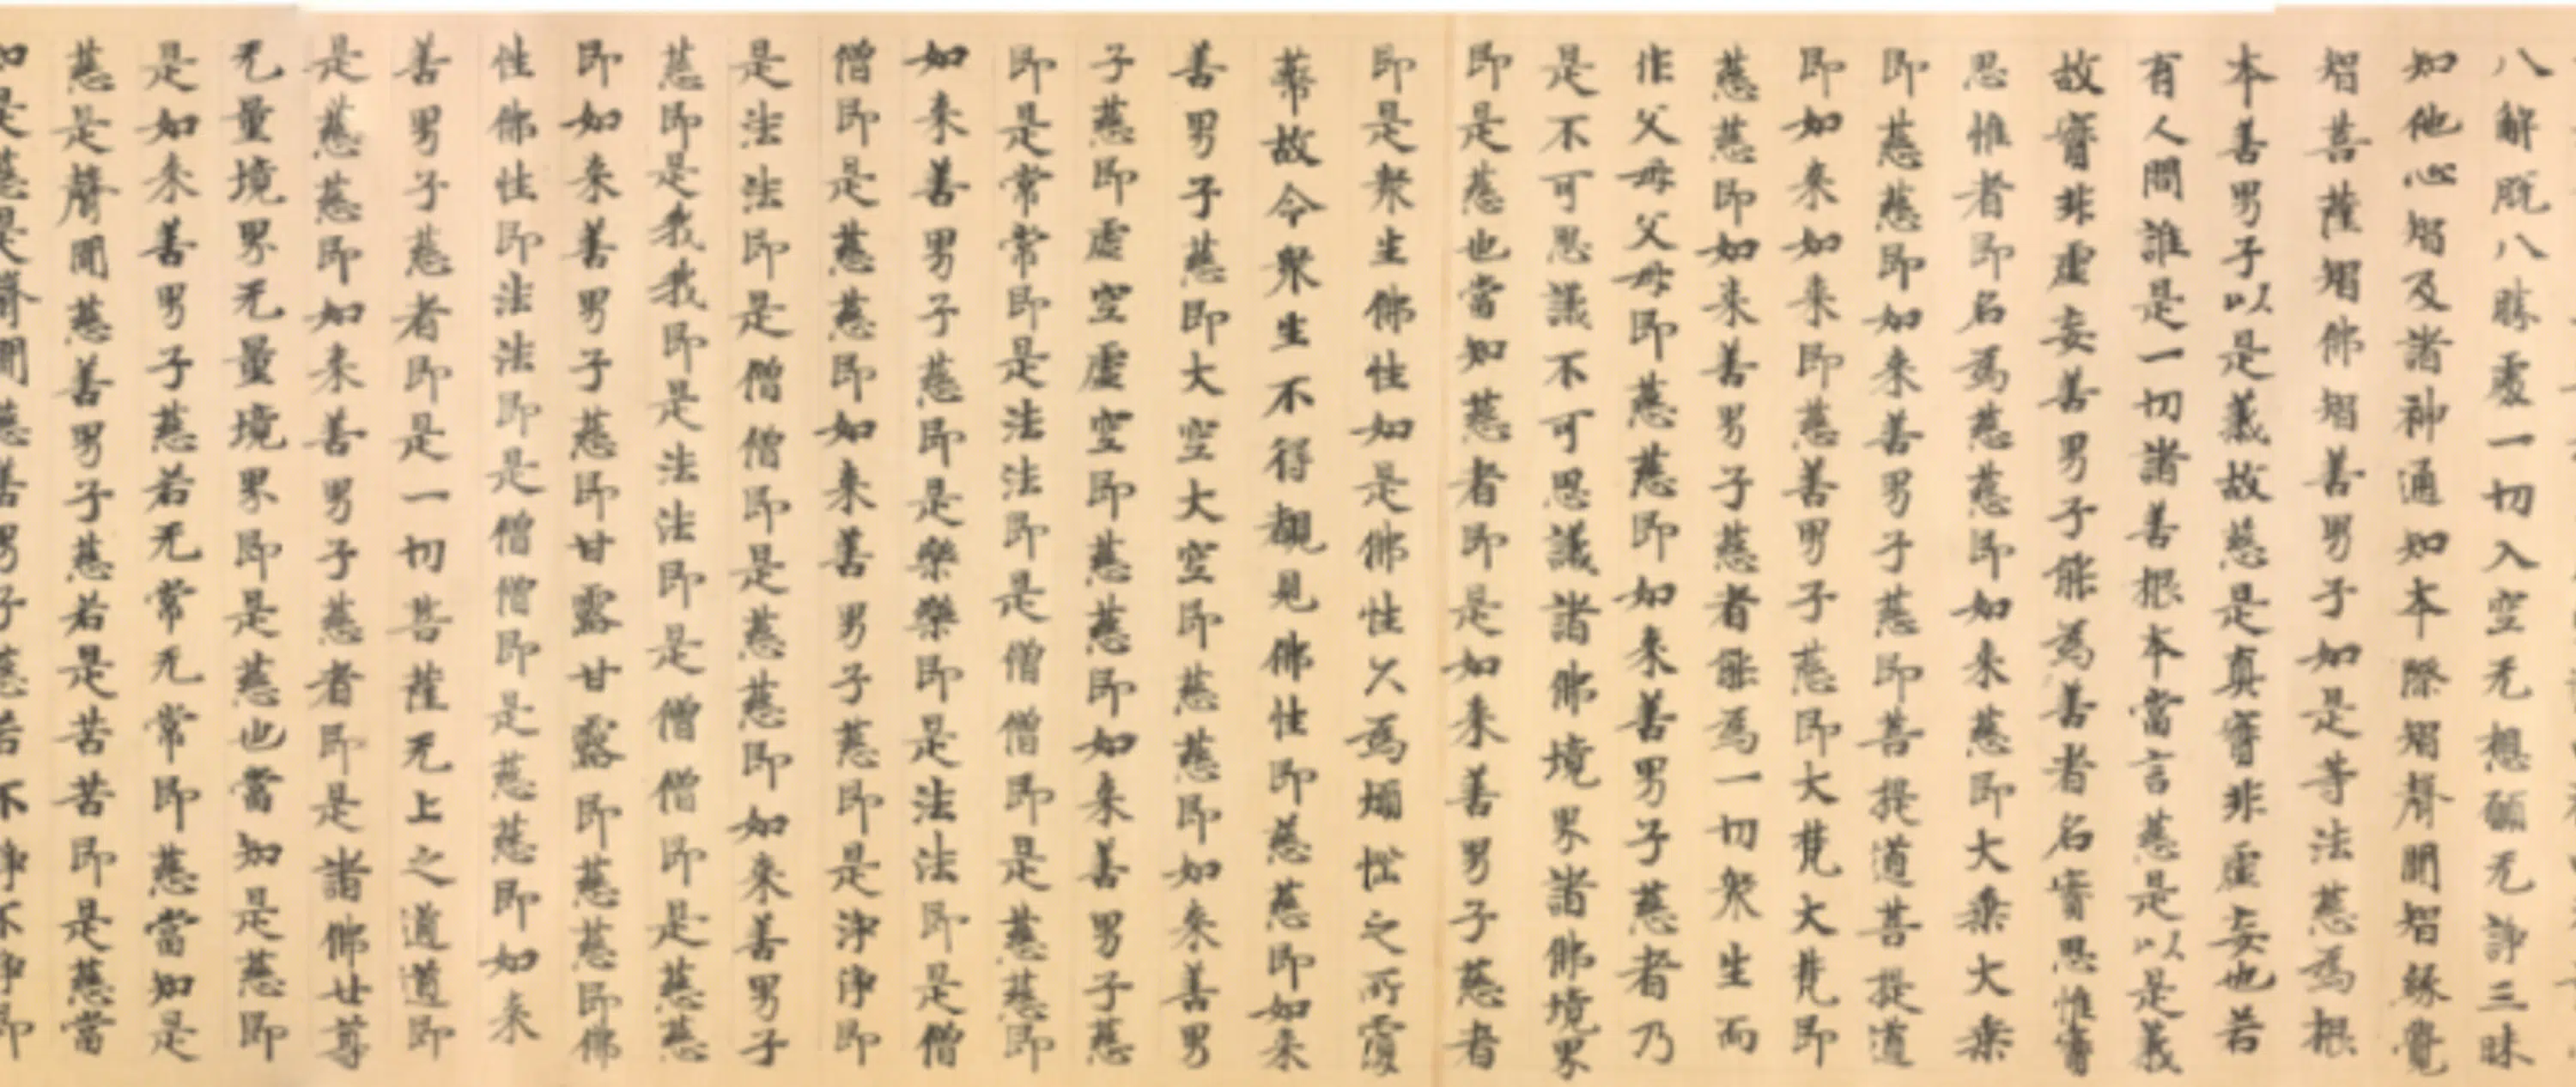 八解脫八勝處一切入空无想願无諍三昧
知他心智及諸神通知本際智聲聞智緣覺
智菩薩智佛智善男子如是等法慈爲根
本善男子以是義故慈是真實非虛妄也若
有人問誰是一切諸善根本當言慈是以是義
故實非虛妄善男子能爲善者名實思惟實
思惟者即名爲慈慈即如来慈即大乘大乘
即慈慈即如来善男子慈即菩提道菩提道
即如来如来即慈善男子慈即大梵大梵即
慈慈即如来善男子慈者能爲一切眾生而
作父母父母即慈慈即如来善男子慈者乃
是不可思議不可思議諸佛境界諸佛境界
即是慈也當知慈者即是如来善男子慈者
即是眾生佛性如是佛性久爲煩惱之所覆
蔽故令眾生不得覩見佛性即慈慈即如来
善男子慈即大空大空即慈慈即如来善男
子慈即虛空虛空即慈慈即如来善男子慈
即是常常即是法法即是僧僧即是慈慈即
如来善男子慈即是樂樂即是法法即是僧
僧即是慈慈即如来善男子慈即是淨淨即
是法法即是僧僧即是慈慈即如来善男子
慈即是我我即是法法即是僧僧即是慈慈
即如来善男子慈即甘露甘露即慈慈即佛
性佛性即法法即是僧僧即是慈慈即如来
善男子慈者即是一切菩薩无上之道道即
是慈慈即如来善男子慈者即是諸佛世尊
无量境界无量境界即是慈也當知是慈即
是如来善男子慈若无常无常即慈當知是
慈是聲聞慈善男子慈若是苦苦即是慈當
知是慈是聲聞慈善男子慈若不淨不淨即